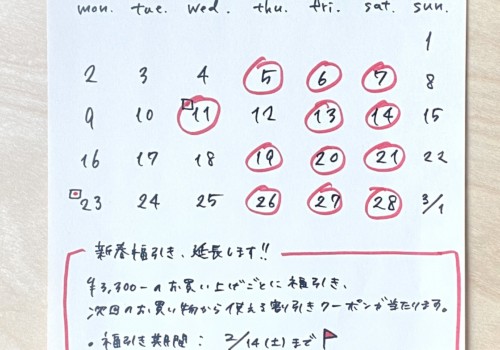 mon. tue. wed. thu. fri. sat. sun.
1
2 3 4 5 6 7 8
9 10 11 12 13 14 15
16 17 18 19 20 21 22
23 24 25 26 27 28 3/1
新春福引き、延長します!!
¥3,300-のお買い上げごとに福引き、
次回のお買い物から使える割引きクーポンが当たります。
・福引き期間: 2/14(土)まで